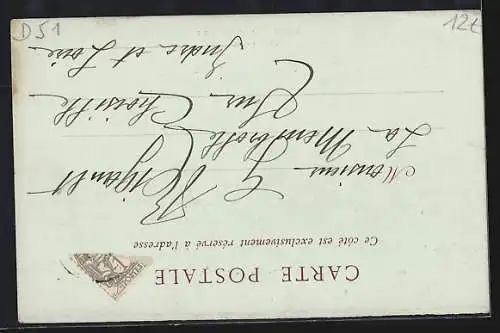 CARTE POSTALE
Ce côté est exclusivement réservé à l'adresse
Monsieur
La Membrolle
Sur Choisille
Indre et Loire
D51
12€